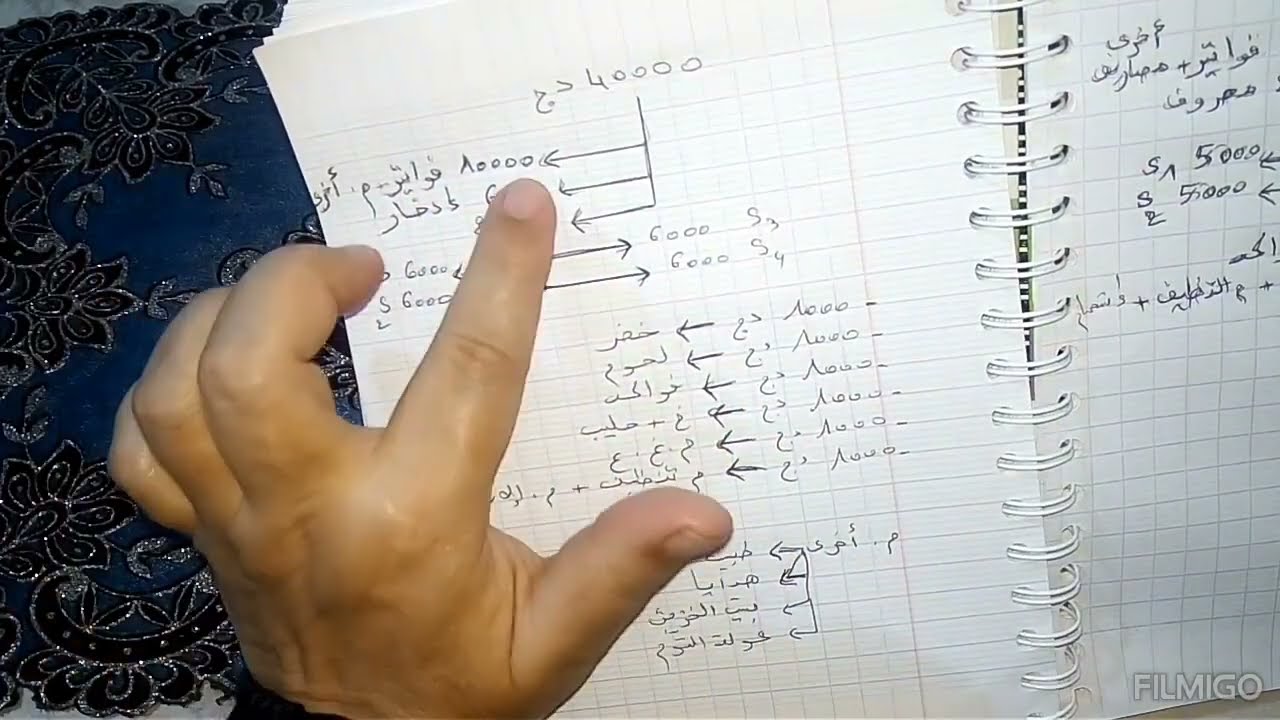 40000 دج
10000 فواتير + م. أخرى
6 إدخار
6000 S3
6000 S4
6000
S2 6000
- 1000 دج ← خضر
- 1000 دج ← لحوم
- 1000 دج ← فواكه
- 1000 دج ← خ + حليب
- 1000 دج ← م.غ.ع
- 1000 دج ← م تنظيف + م.
م. أخرى ← طبيب
← هدايا
← بيت الخزين
← عولة الثوم
أخرى
فواتير + مصاريف
مصروف
S1 5000 ←
S2 5000 ←
+ م التنظيف +
FILMIGO